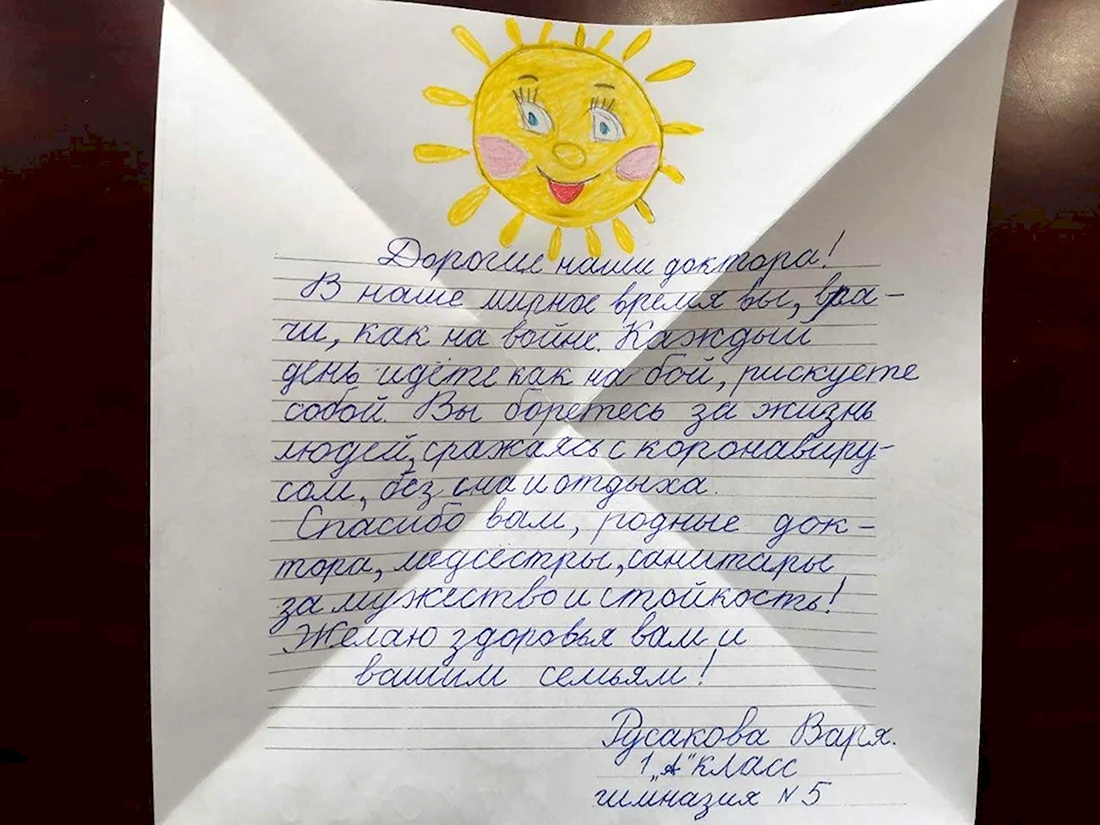 Дорогие наши доктора!
В наше мирное время вы, вра-
чи, как на войне. Каждый
день идёте как на бой, рискуете
собой. Вы боретесь за жизнь
людей, сражаясь с коронавиру-
сом, без сна и отдыха.
Спасибо вам, родные док-
тора, медсёстры, санитары
за мужество и стойкость!
Желаю здоровья вам и
вашим семьям!
Русакова Варя.
1 „А" класс
гимназия № 5